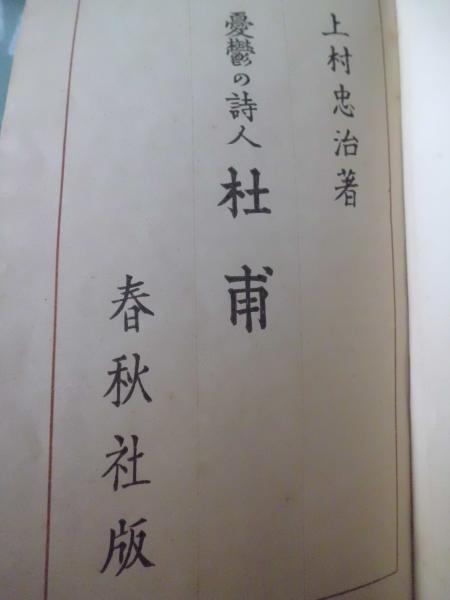 上村忠治著
憂鬱の詩人 杜甫
春秋社版